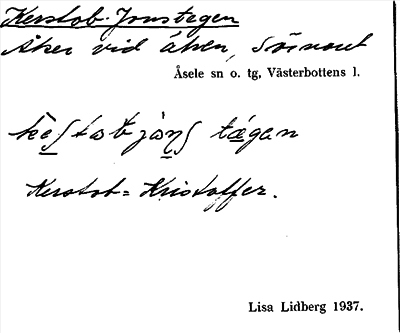 Kerstob-Jonstegen
Åker vid älven, Sörnoret
Åsele sn o. tg, Västerbottens l.
tǽgan
Kerstob = Kristoffer.
Lisa Lidberg 1937.